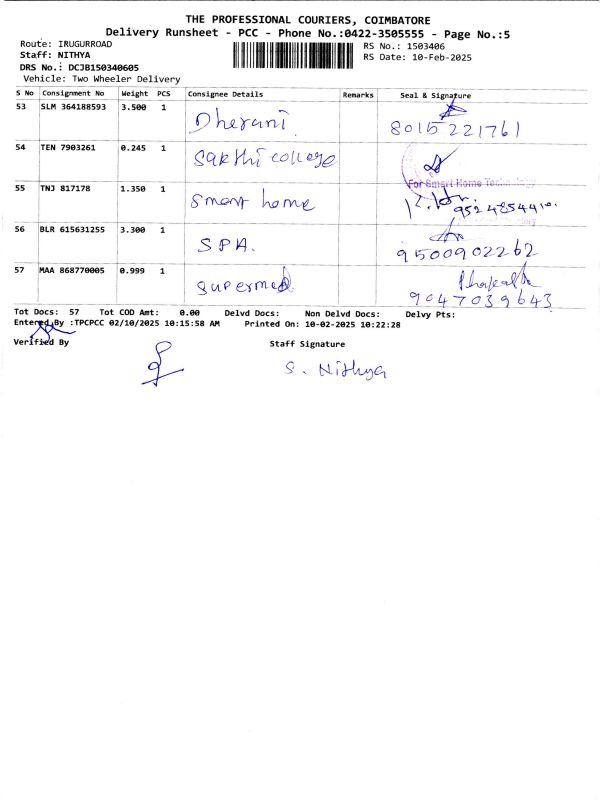 THE PROFESSIONAL COURIERS, COIMBATORE
Delivery Runsheet - PCC - Phone No.:0422-3505555 - Page No.:5
Route: IRUGURROAD RS No.: 1503406
Staff: NITHYA RS Date: 10-Feb-2025
DRS No.: DCJB150340605
Vehicle: Two Wheeler Delivery
S No Consignment No Weight PCS Consignee Details Remarks Seal & Signature
53 SLM 364188593 3.500 1 Dherani 8015221761
54 TEN 7903261 0.245 1 Sakthi college
For Smart Home Technology
55 TNJ 817178 1.350 1 Smart home 9524854410
56 BLR 615631255 3.300 1 SPA. 9500902262
57 MAA 868770005 0.999 1 Supermed 9047039643
Tot Docs: 57 Tot COD Amt: 0.00 Delvd Docs: Non Delvd Docs: Delvy Pts:
Entered By :TPCPCC 02/10/2025 10:15:58 AM Printed On: 10-02-2025 10:22:28
Verified By Staff Signature
S. Nithya